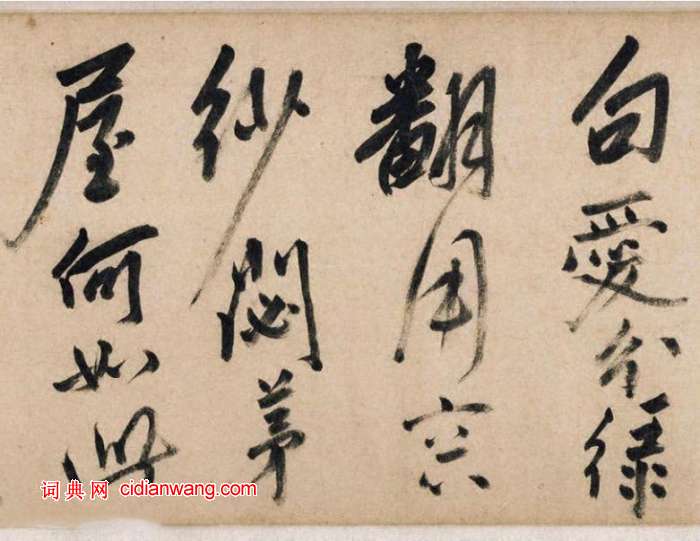 句愛
翻用
紗閟茅
屋何如此
词典网 cidianwang.com